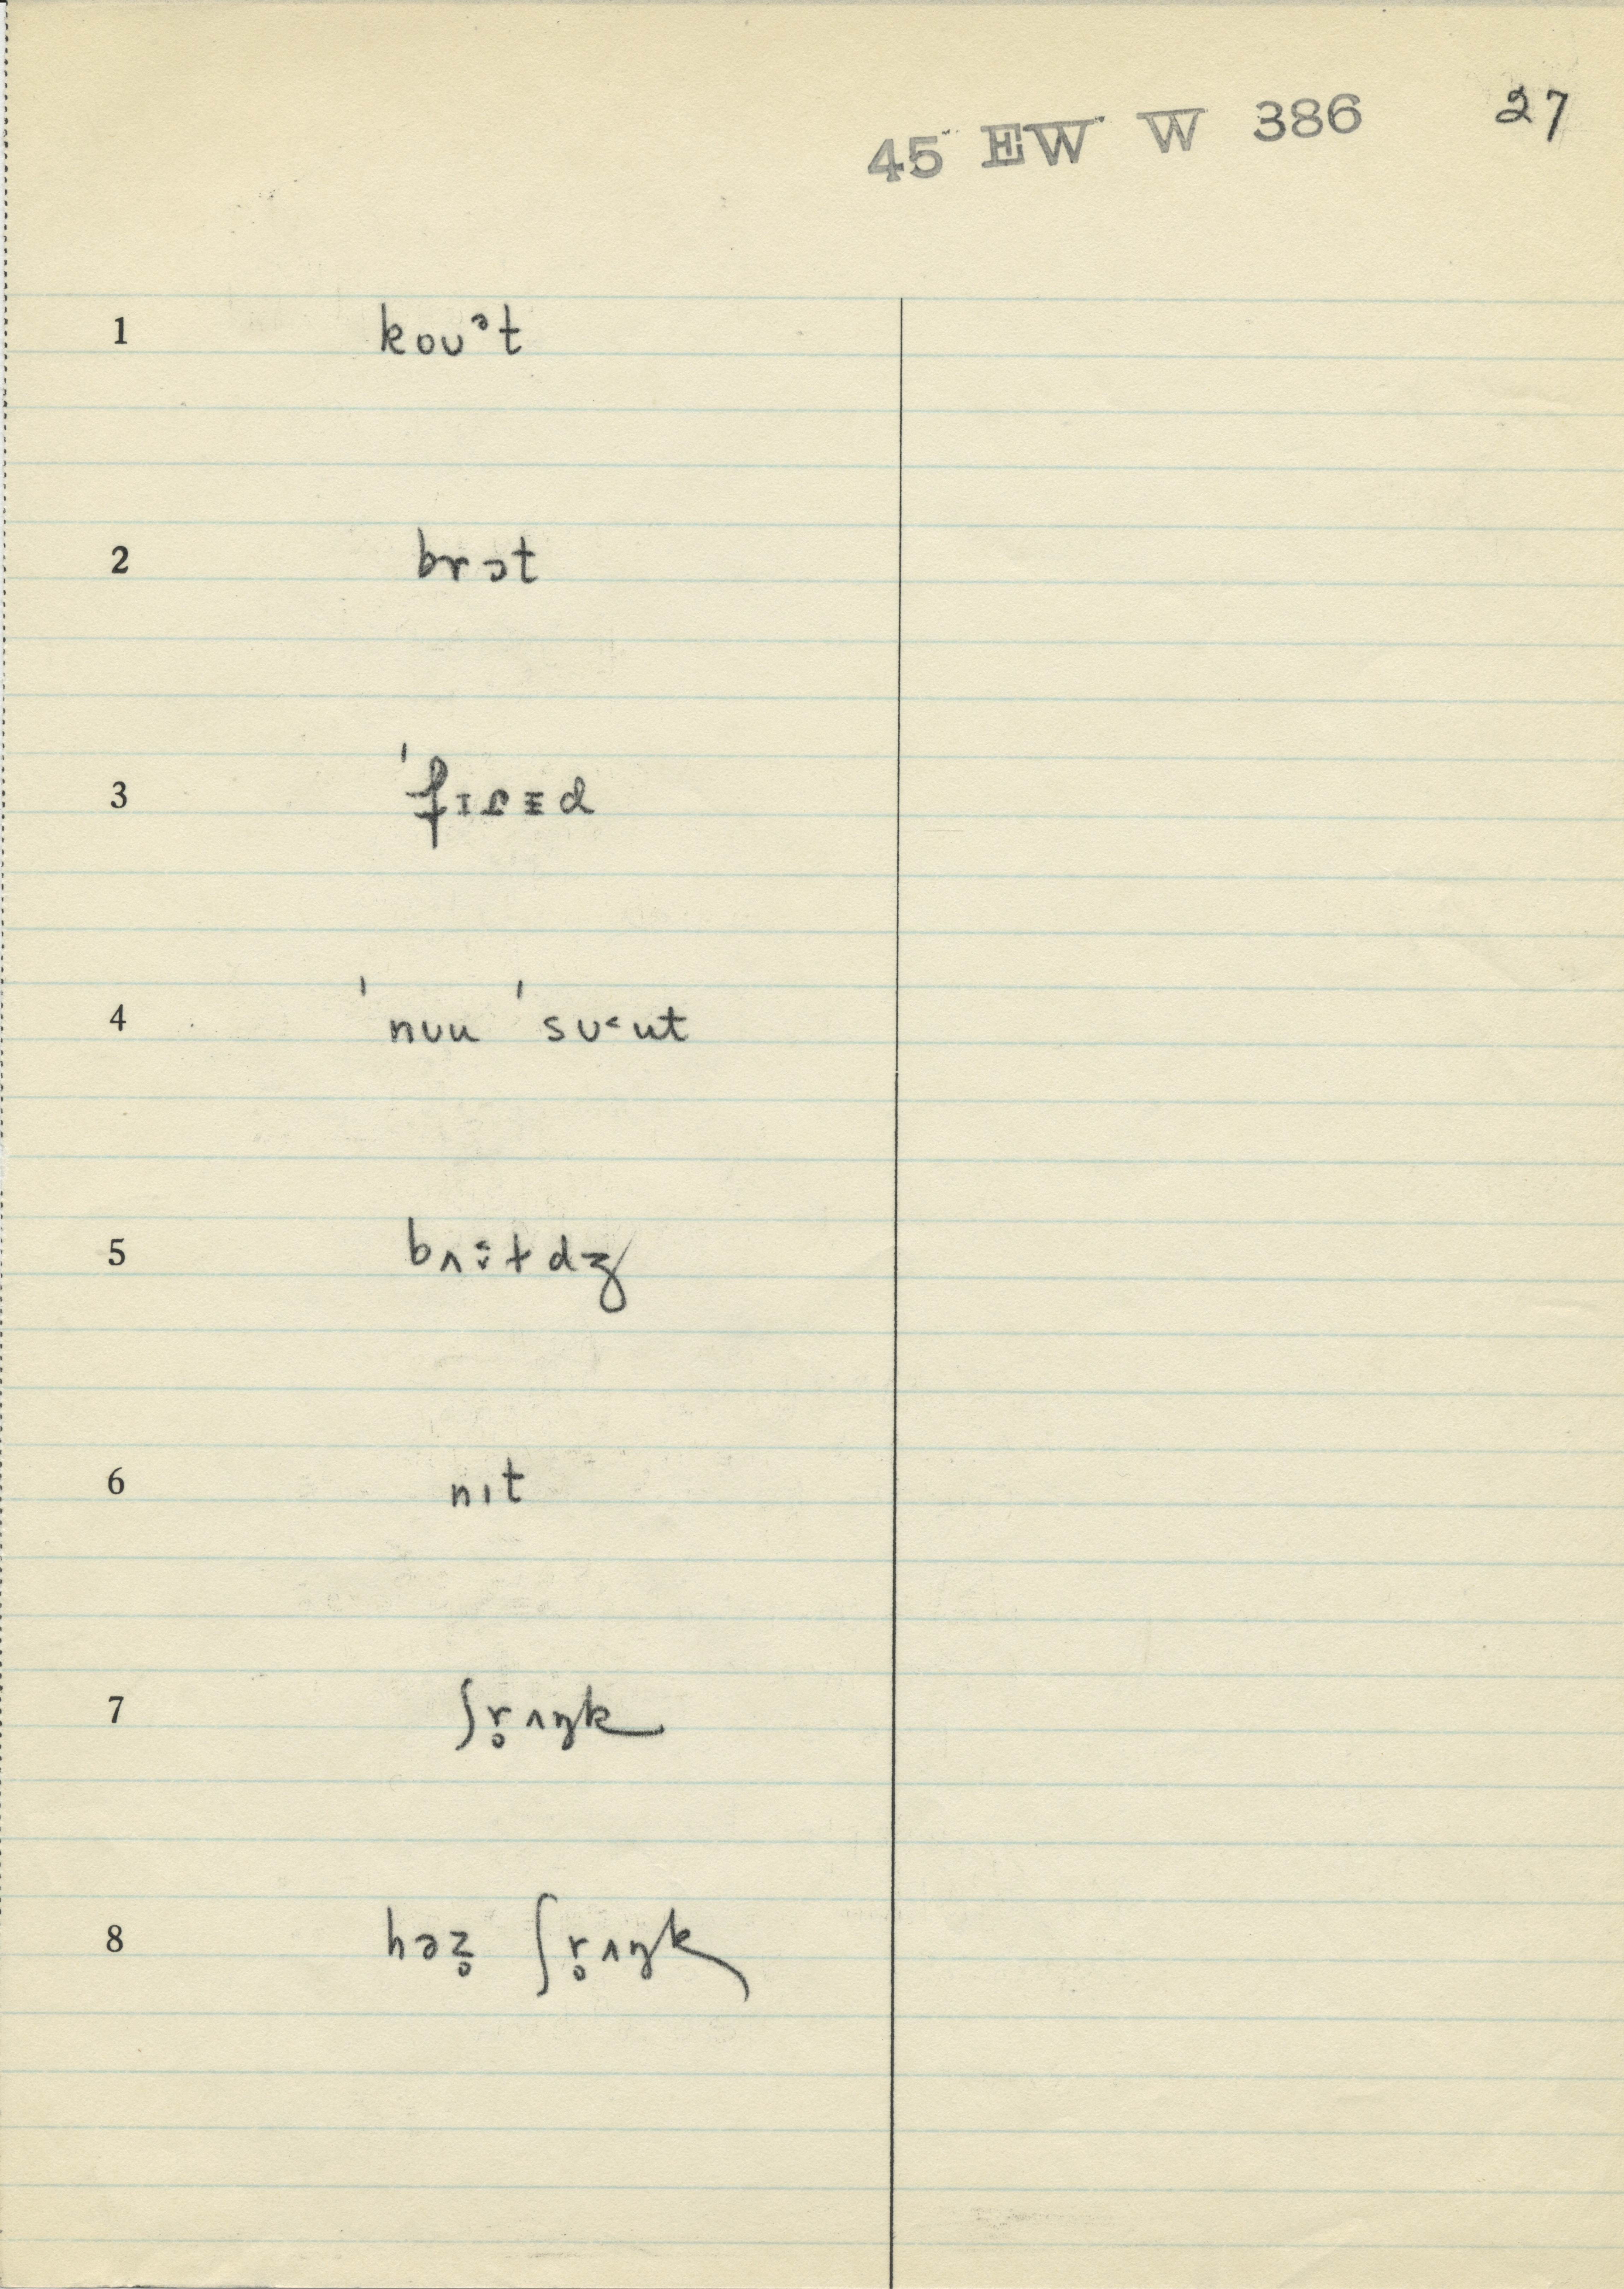 45 EW W 386 27
1 koʊᵊt
2 brɔt
3 ˈfɪɾɪ̵d
4 ˈnʊu ˈsʊ˂ut
6 nɪt
7 ʃr̥ʌŋk
8 həz̥ ʃr̥ʌŋk